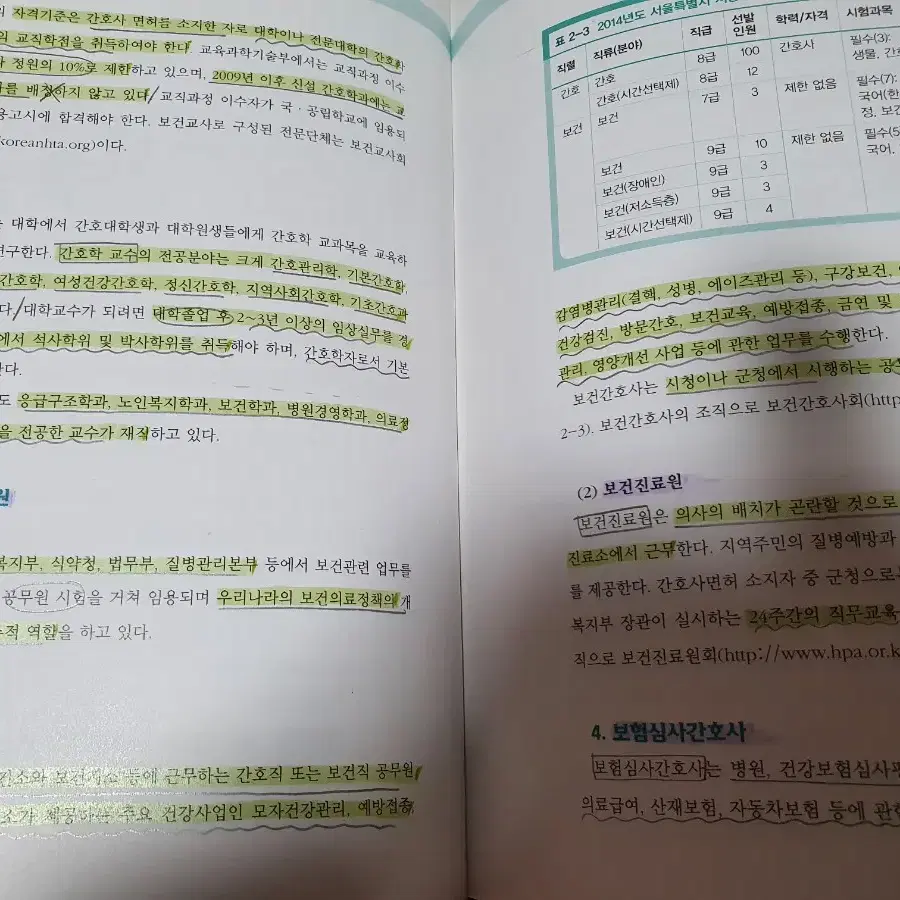 자격기준은 간호사 면허를 소지한 자로 대학이나 전문대학의 간호
교직학점을 취득하여야 한다. 교육과학기술부에서는 교직과정 이수
정원의 10%로 제한하고 있으며, 2009년 이후 신설 간호학과에는 교
를 배정하지 않고 있다/ 교직과정 이수자가 국·공립학교에 임용되
용고시에 합격해야 한다. 보건교사로 구성된 전문단체는 보건교사회
koreanhta.org)이다.
대학에서 간호대학생과 대학원생들에게 간호학 교과목을 교육하
연구한다. 간호학 교수의 전공분야는 크게 간호관리학, 기본간호학,
간호학, 여성건강간호학, 정신간호학, 지역사회간호학, 기초간호과
다./ 대학교수가 되려면 대학졸업 후 2~3년 이상의 임상실무를 경
에서 석사학위 및 박사학위를 취득해야 하며, 간호학자로서 기본
한다.
도 응급구조학과, 노인복지학과, 보건학과, 병원경영학과, 의료정
을 전공한 교수가 재직하고 있다.
원
복지부, 식약청, 법무부, 질병관리본부 등에서 보건관련 업무를
공무원 시험을 거쳐 임용되며 우리나라의 보건의료정책의 개
적 역할을 하고 있다.
등에 근무하는 간호직 또는 보건직 공무원
주요 건강사업인 모자건강관리, 예방접종,
표 2-3 2014년도 서울특별시
직렬 직류(분야) 직급 선발인원 학력/자격 시험과목
간호 간호 8급 100 간호사 필수(3):
생물, 간호
간호(시간선택제) 8급 12
보건 보건 7급 3 제한 없음 필수(7):
국어(한
정, 보건
보건 9급 10 제한 없음 필수(5
국어,
보건(장애인) 9급 3
보건(저소득층) 9급 3
보건(시간선택제) 9급 4
감염병관리(결핵, 성병, 에이즈관리 등), 구강보건,
건강검진, 방문간호, 보건교육, 예방접종, 금연 및
관리, 영양개선 사업 등에 관한 업무를 수행한다.
보건간호사는 시청이나 군청에서 시행하는 공
2-3). 보건간호사의 조직으로 보건간호사회(http
(2) 보건진료원
보건진료원은 의사의 배치가 곤란할 것으로
진료소에서 근무한다. 지역주민의 질병예방과
를 제공한다. 간호사면허 소지자 중 군청으로
복지부 장관이 실시하는 24주간의 직무교육
직으로 보건진료원회(http://www.hpa.or.k
4. 보험심사간호사
보험심사간호사는 병원, 건강보험심사평
의료급여, 산재보험, 자동차보험 등에 관한